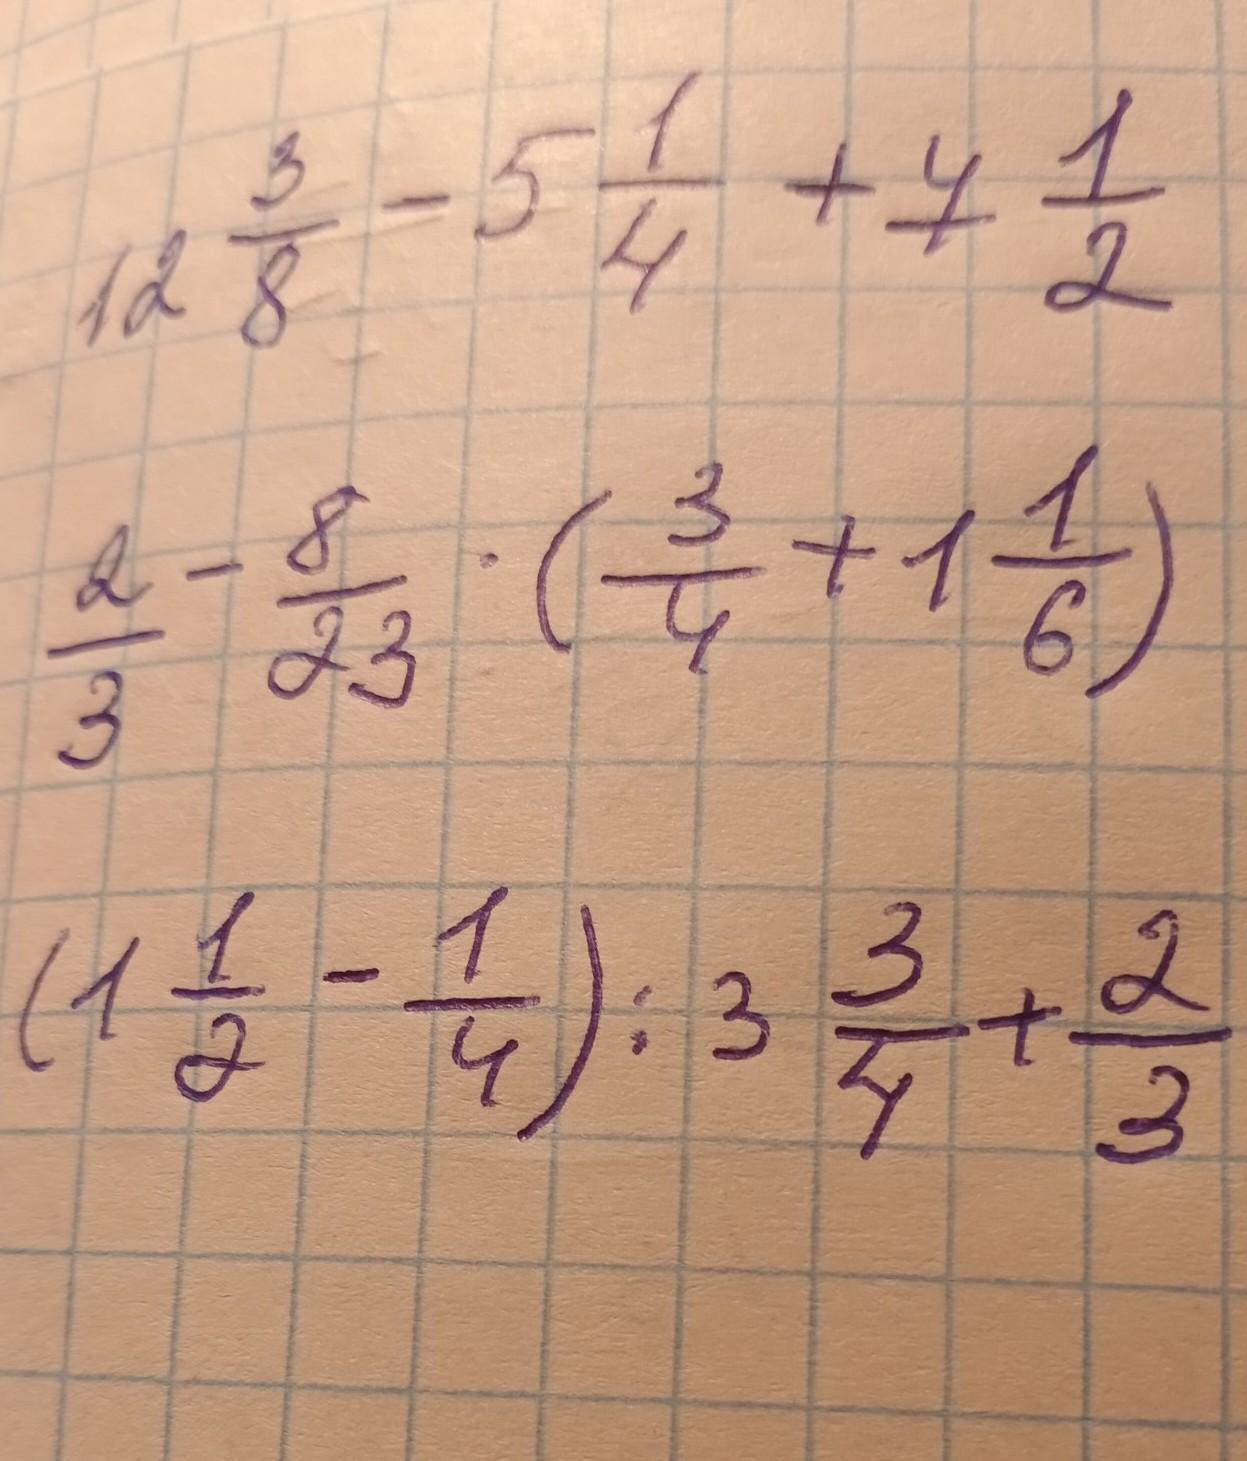 12 3/8 - 5 1/4 + 4 1/2
2/3 - 8/23 · (3/4 + 1 1/6)
(1 1/2 - 1/4) : 3 3/4 + 2/3